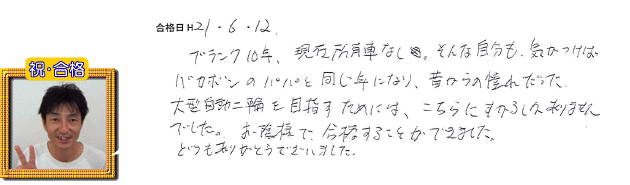 合格日 H21・6・12.
ブランク10年、現在所有車なし。そんな自分も、気がつけば
バカボンのパパと同じ年になり、昔からの憧れだった
大型自動二輪を目指すためには、こちらにすがるしかありません
でした。お陰様で合格することができました。
どうもありがとうございました。
祝・合格